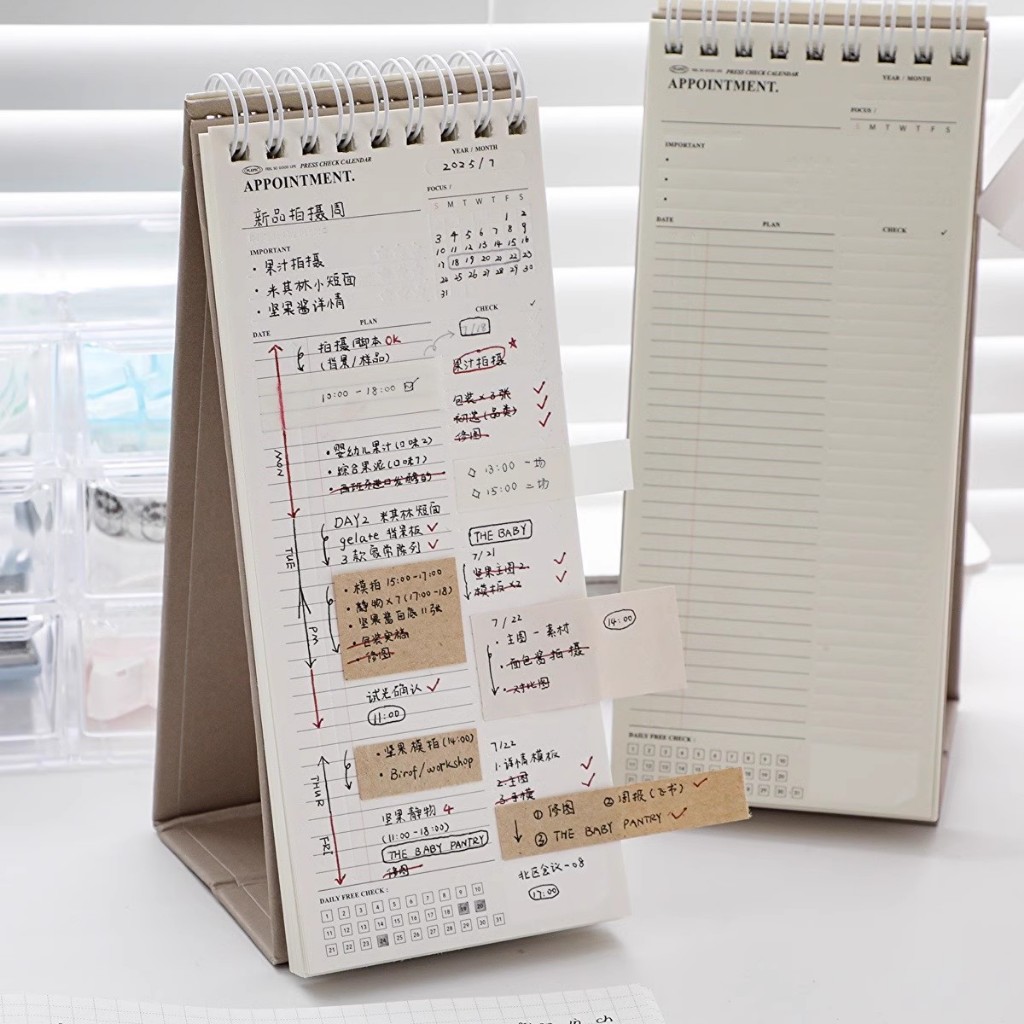 PRESS CHECK CALENDAR
APPOINTMENT.
YEAR / MONTH
2025 / 7
新品拍摄周
FOCUS /
S M T W T F S
1 2
3 4 5 6 7 8 9
10 11 12 13 14 15 16
17 18 19 20 21 22 23
24 25 26 27 28 29 30
31
IMPORTANT
• 果汁拍摄
• 米其林小短面
• 坚果酱详情
DATE PLAN
拍摄脚本 OK
(背果/样品)
10:00 - 18:00
MON
• 婴幼儿果汁(口味2)
• 综合果泥(口味7)
TUE
DAY2 米其林短面
gelate 背景板
3款
PM
• 模拍 15:00-17:00
• 静物×7(17:00-18)
• 坚果酱白底11张
• 包装实摘
• 修图
试光确认
11:00
THUR
• 坚果模拍(14:00)
• Birof/workshop
FRI
坚果静物 4
(11:00-18:00)
THE BABY PANTRY
修图
CHECK ✓
7/18
果汁拍摄
包装×3张
初选(品类)
修图
◇ 13:00 一场
◇ 15:00 二场
THE BABY
7/21
坚果主图2.
模板×2
7/22
14:00
• 主图一素材
• 面包酱拍摄
• 对比图
7/22
1.详情模板
2.主图
3.手模
① 修图 ② 周报(飞书)
③ THE BABY PANTRY
北区会议-08
17:00
DAILY FREE CHECK :
1 2 3 4 5 6 7 8 9 10
11 12 13 14 15 16 17 18 19 20
21 22 23 24 25 26 27 28 29 30 31
PRESS CHECK CALENDAR
APPOINTMENT.
YEAR / MONTH
FOCUS /
S M T W T F S
IMPORTANT
DATE PLAN CHECK ✓
DAILY FREE CHECK :